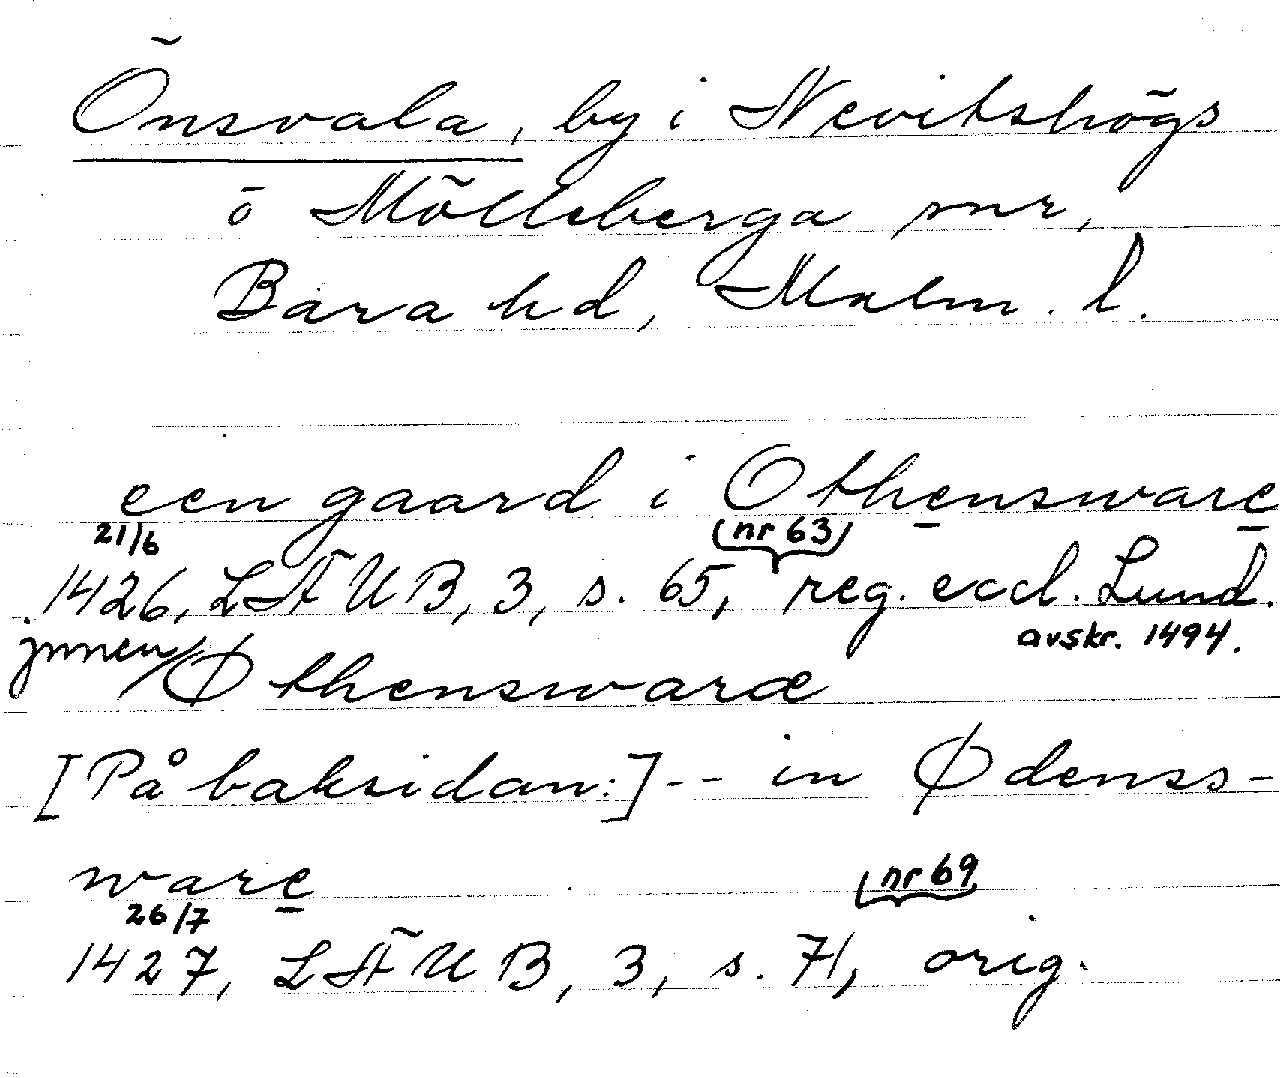 Önsvala, by i Nevitshögs
o Mölleberga snr,
Bara hd, Malm. l.
een gaard i Othensware
21/6 (nr 63)
1426, LÄUB, 3, s. 65, reg. eccl. Lund.
avskr. 1494.
jnnen/Øthenswaræ
[På baksidan:] -- in Ødenss-
ware
26/7 (nr 69
1427, LÄUB, 3, s. 71, orig.